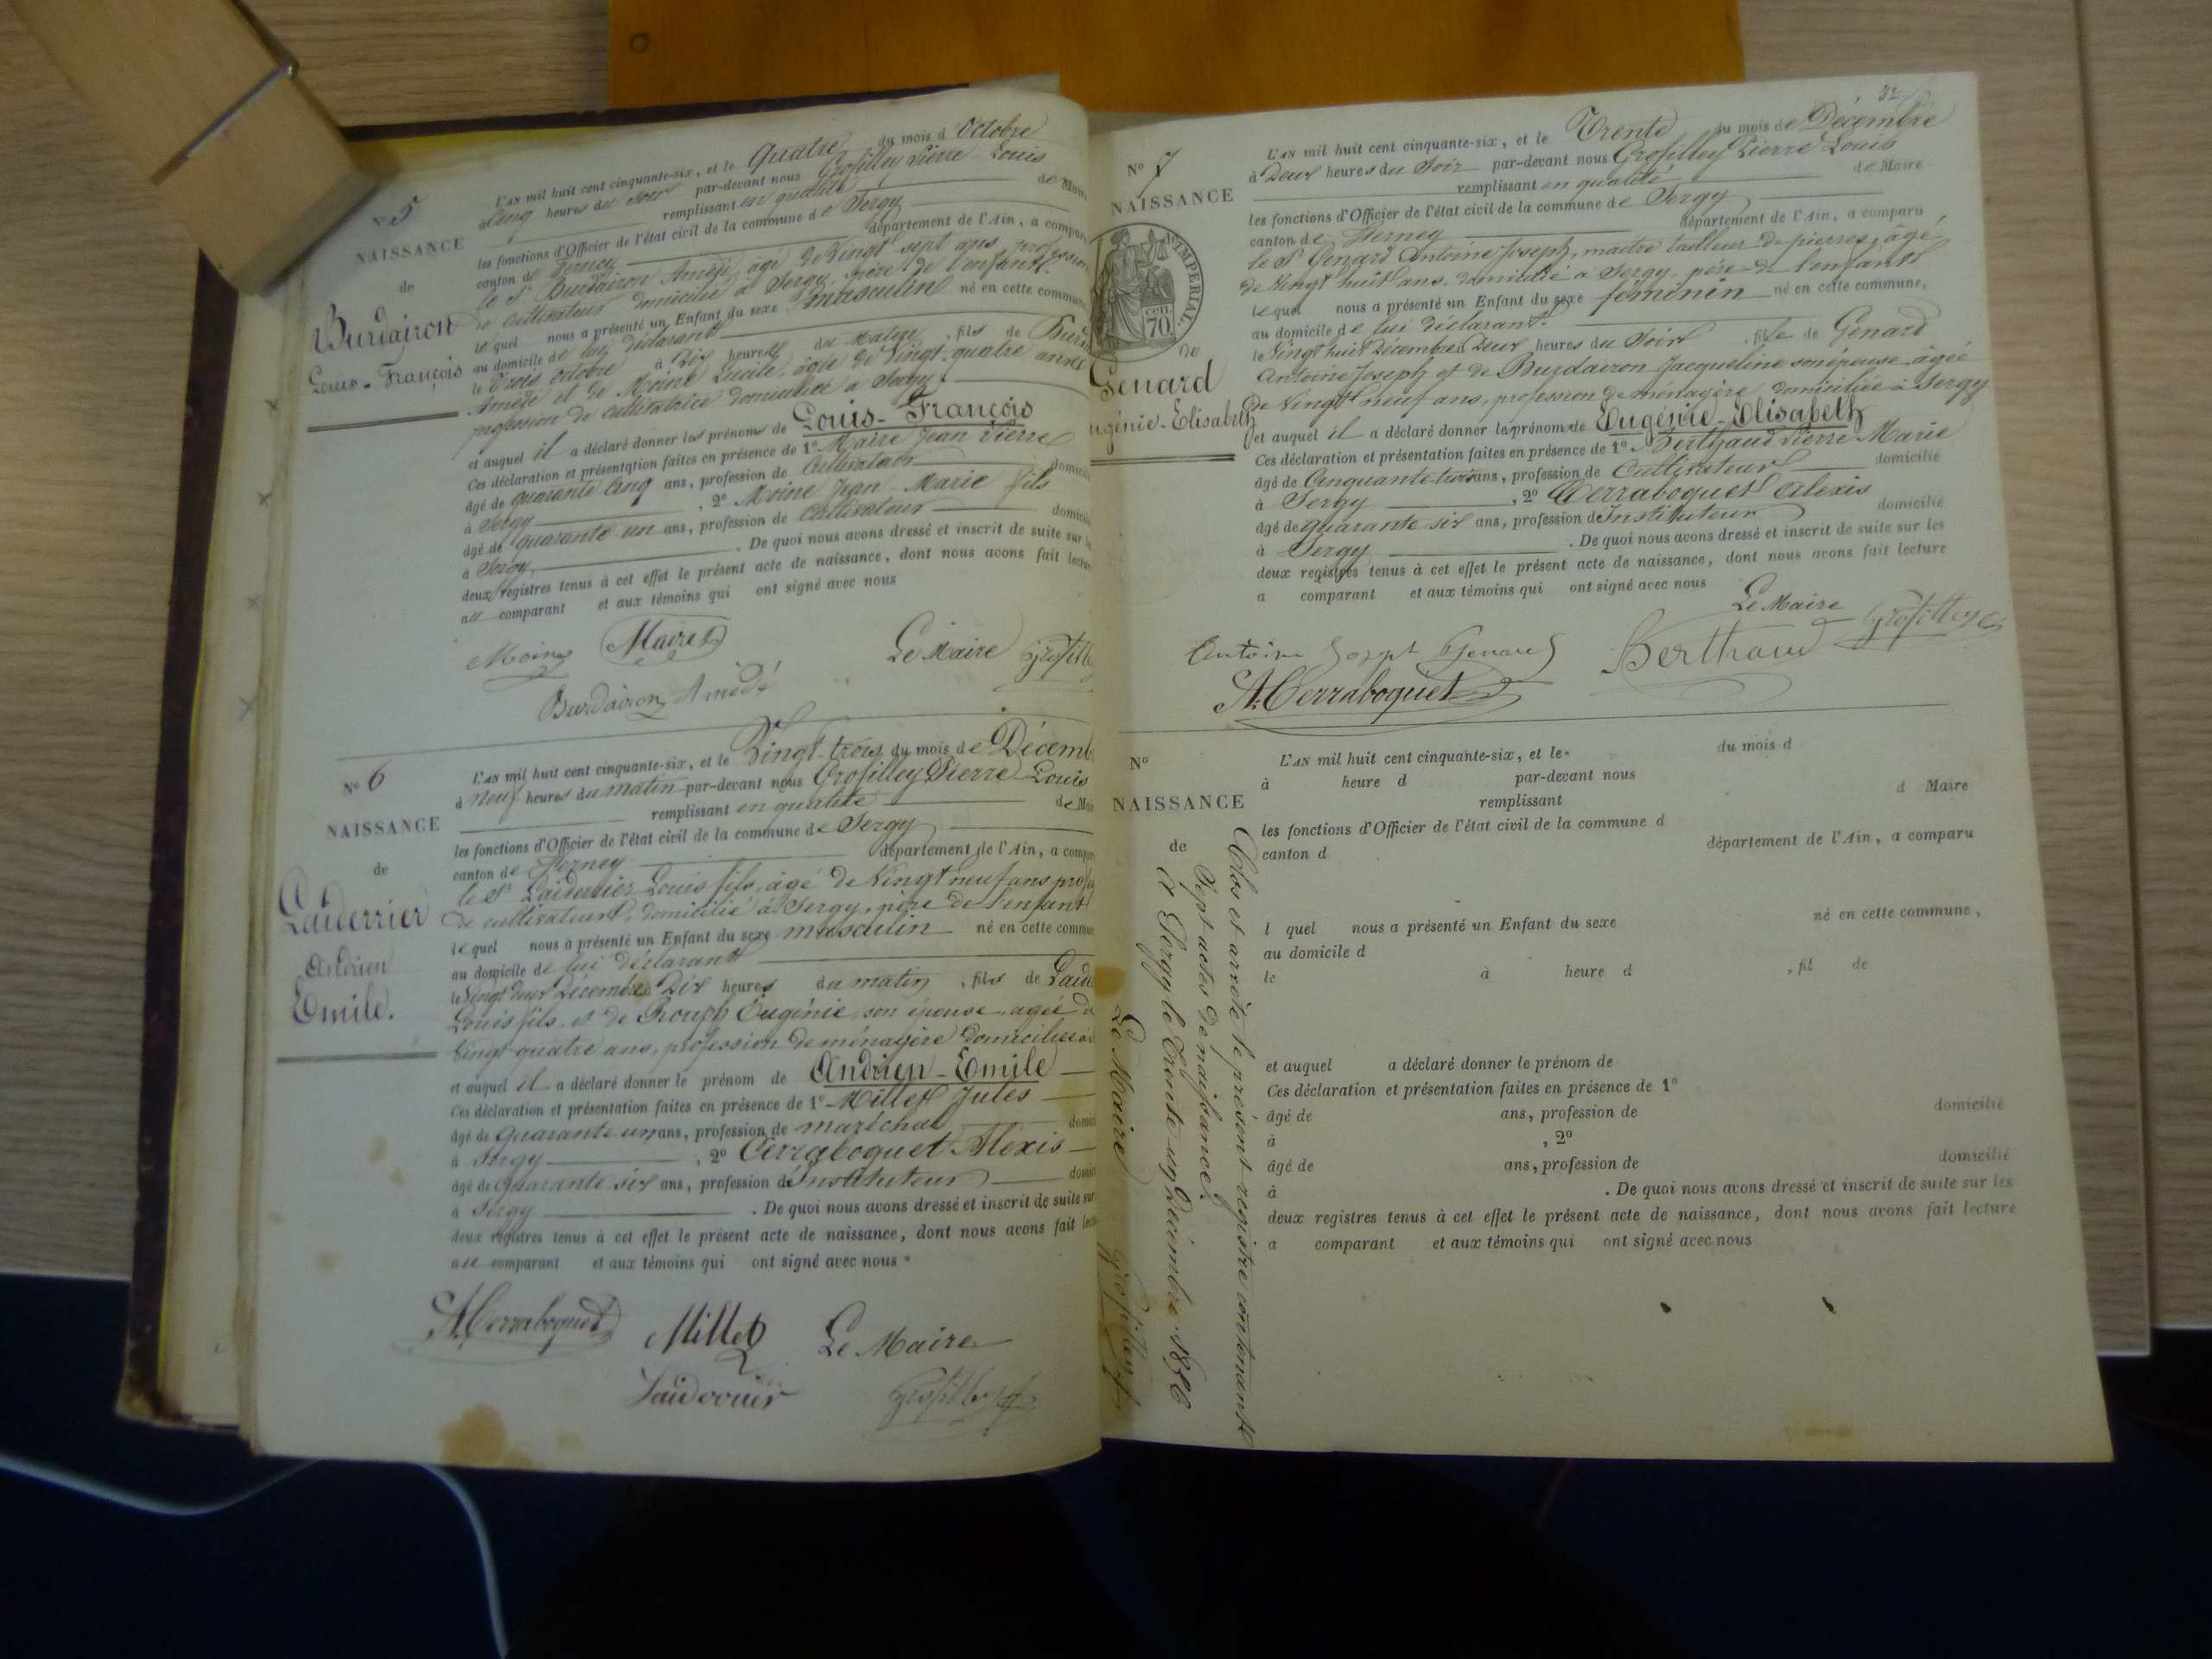 N° 5
NAISSANCE
de
Burdairon
Louis-François
L'AN mil huit cent cinquante-six, et le Quatre du mois d'Octobre
à Cinq heures du Soir par-devant nous Grosfilley Pierre Louis
remplissant en qualité de Maire
les fonctions d'Officier de l'état civil de la commune de Sergy
canton de Ferney département de l'Ain, a comparu
le Sr Burdairon Amédé, agé de Vingt sept ans, profession
de cultivateur domicilié à Sergy, père de l'enfant.
lequel nous a présenté un Enfant du sexe masculin né en cette commune
au domicile de lui déclarant
le Trois octobre à Dix heures du Matin, fils de
Amédé et de Moine Lucile, agée de Vingt-quatre années
profession de cultivatrice domiciliée à Sergy.
et auquel il a déclaré donner les prénoms de Louis-François
Ces déclaration et présentation faites en présence de 1° Maire Jean Pierre
âgé de quarante Cinq ans, profession de Cultivateur domicilié
à Sergy, 2° Moine Jean-Marie fils
âgé de quarante un ans, profession de Cultivateur domicilié
à Sergy. De quoi nous avons dressé et inscrit de suite sur les
deux registres tenus à cet effet le présent acte de naissance, dont nous avons fait lecture
au comparant et aux témoins qui ont signé avec nous
Moine Maire Le Maire
Burdairon Amédé
N° 6
NAISSANCE
de
Laiderrier
Andrien
Emile.
L'AN mil huit cent cinquante-six, et le Vingt-trois du mois de Décemb
à neuf heures du matin par-devant nous Grosfilley Pierre Louis
remplissant en qualité de Mai
les fonctions d'Officier de l'état civil de la commune de Sergy
canton de Ferney département de l'Ain, a comparu
le Sr Laiderrier Louis fils, âgé de Vingt neuf ans prof
de cultivateur, domicilié à Sergy, père de l'enfant
lequel nous a présenté un Enfant du sexe masculin né en cette commune
au domicile de lui déclarant
le Vingt deux Décembre à Dix heures du matin, fils de Laid
Louis fils, et de Eugénie, son épouse, agée de
Vingt-quatre ans, profession de ménagère domiciliée à
et auquel il a déclaré donner le prénom de Andrien-Emile
Ces déclaration et présentation faites en présence de 1° Millet Jules
âgé de quarante un ans, profession de maréchal domi
à Sergy, 2° Cerraboquet Alexis
âgé de quarante six ans, profession d'Instituteur domi
à Sergy. De quoi nous avons dressé et inscrit de suite sur
deux registres tenus à cet effet le présent acte de naissance, dont nous avons fait lect
au comparant et aux témoins qui ont signé avec nous
A. Cerraboquet Millet Le Maire
Laiderrier
N° 7
NAISSANCE
TIMBRE IMPERIAL.
70 cen
de
Genard
ugénie-Elisabeth
L'AN mil huit cent cinquante-six, et le Trente du mois de Décembre
à Deux heures du Soir par-devant nous Grosfilley Pierre Louis
remplissant en qualité de Maire
les fonctions d'Officier de l'état civil de la commune de Sergy
canton de Ferney département de l'Ain, a comparu
le Sr Genard Antoine Joseph, maître tailleur de pierres, âgé
de Vingt huit ans, domicilié à Sergy, père de l'enfant
lequel nous a présenté un Enfant du sexe féminin né en cette commune,
au domicile de lui déclarant.
le Vingt huit Décembre à Deux heures du Soir, fille de Genard
Antoine Joseph et de Burdairon Jacqueline son épouse agée
de Vingt neuf ans, profession de ménagère domiciliée à Sergy
et auquel il a déclaré donner le prénom de Eugénie-Elisabeth
Ces déclaration et présentation faites en présence de 1° Berthaud Pierre Marie
âgé de Cinquante-trois ans, profession de Cultivateur domicilié
à Sergy, 2° Cerraboquet Alexis
âgé de quarante six ans, profession d'Instituteur domicilié
à Sergy. De quoi nous avons dressé et inscrit de suite sur les
deux registres tenus à cet effet le présent acte de naissance, dont nous avons fait lecture
a comparant et aux témoins qui ont signé avec nous
Le Maire
Antoine Joseph Genard Berthaud Grosfilley
A. Cerraboquet
N°
NAISSANCE
de
L'AN mil huit cent cinquante-six, et le du mois d
à heure d par-devant nous
remplissant d Maire
les fonctions d'Officier de l'état civil de la commune d
canton d département de l'Ain, a comparu
l quel nous a présenté un Enfant du sexe né en cette commune,
au domicile d
le à heure d, fil de
et auquel a déclaré donner le prénom de
Ces déclaration et présentation faites en présence de 1°
âgé de ans, profession de domicilié
à , 2°
âgé de ans, profession de domicilié
à . De quoi nous avons dressé et inscrit de suite sur les
deux registres tenus à cet effet le présent acte de naissance, dont nous avons fait lecture
a comparant et aux témoins qui ont signé avec nous
Clos et arrêté le présent registre contenant
Sept actes de naissance.
A Sergy le Trente un Décembre 1856
Le Maire
Grosfilley